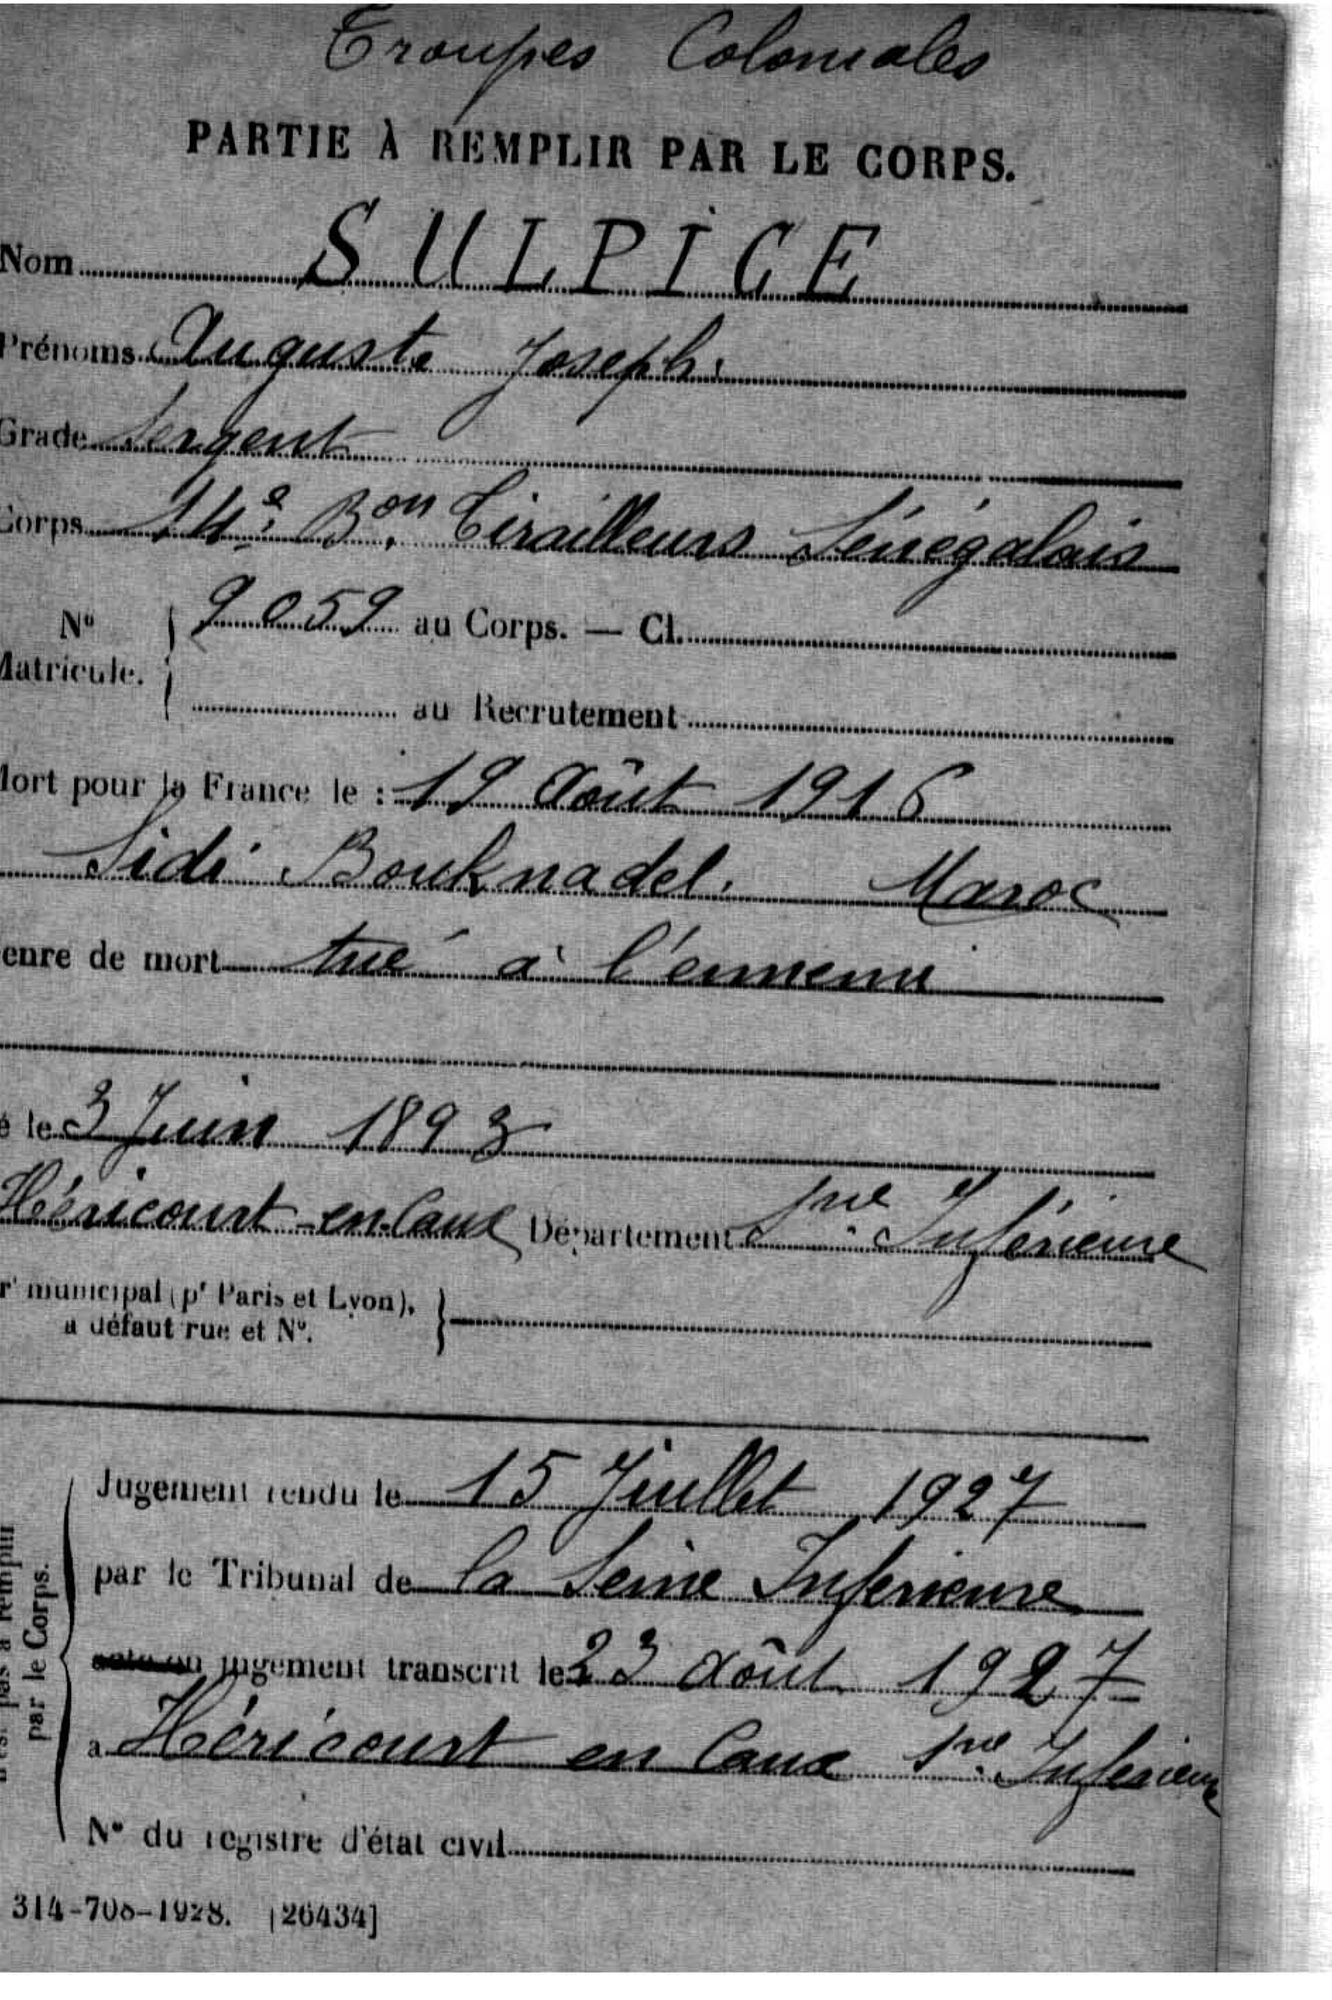 Troupes Coloniales
PARTIE À REMPLIR PAR LE CORPS.
Nom SULPICE
Prénoms Auguste Joseph.
Grade Sergent
Corps 14e Bon Tirailleurs Sénégalais
No Matricule. { 9059 au Corps. — Cl.
au Recrutement
Mort pour la France le : 19 Août 1916
Sidi Bouknadel. Maroc
enre de mort tué à l'ennemi
é le 3 Juin 1893
Héricourt-en-Caux Département Sre Inférieure
rt municipal (pr Paris et Lyon), à défaut rue et No. }
Jugement rendu le 15 Juillet 1927
par le Tribunal de la Seine Inférieure
acte ou jugement transcrit le 23 Août 1927
a Héricourt en Caux Sre Inférieure
No du registre d'état civil
est pas à remplir
par le Corps.
314-708-1928. [26434]